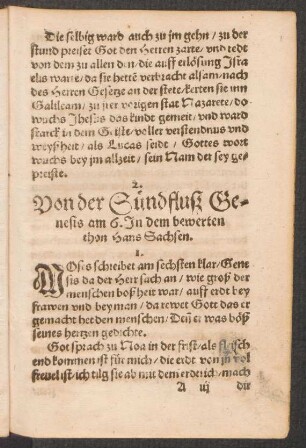 Die selbig ward auch zu jm gehn / zu der
stund preiset Got den Herren zarte / vnd redt
von dem zu allen den / die auff erlösung Isra
elis warte / da sie hettē verbracht alsam / nach
des Herren Gesetze an der stete / kerten sie inn
Galileam / zu irer vorigen stat Nazarete / do
wuchs Jhesus das kindt gemeit / vnd ward
starck in dem Geiste / voller verstendnus vnd
weyßheit / als Lucas seidt / Gottes wort
wuchs bey jm allzeit / sein Nam der sey ge-
preiste.
2.
Von der Sündfluß Ge-
nesis am 6. In dem bewerten
thon Hans Sachsen.
1.
MOses schreibet am sechsten klar / Gene
sis da der Herr sach an / wie groß der
menschen boßheit war / auff erdt bey
frawen vnd bey man / da rewet Gott das er
gemacht het den menschen / Deñ er was böß
seines hertzen gedichte.
Got sprach zu Noa in der frist / als fleisch
end kommen ist für mich / die erdt von jn vol
freuel ist / ich tilg sie ab mit dem erdtrich / mach
A iij dir